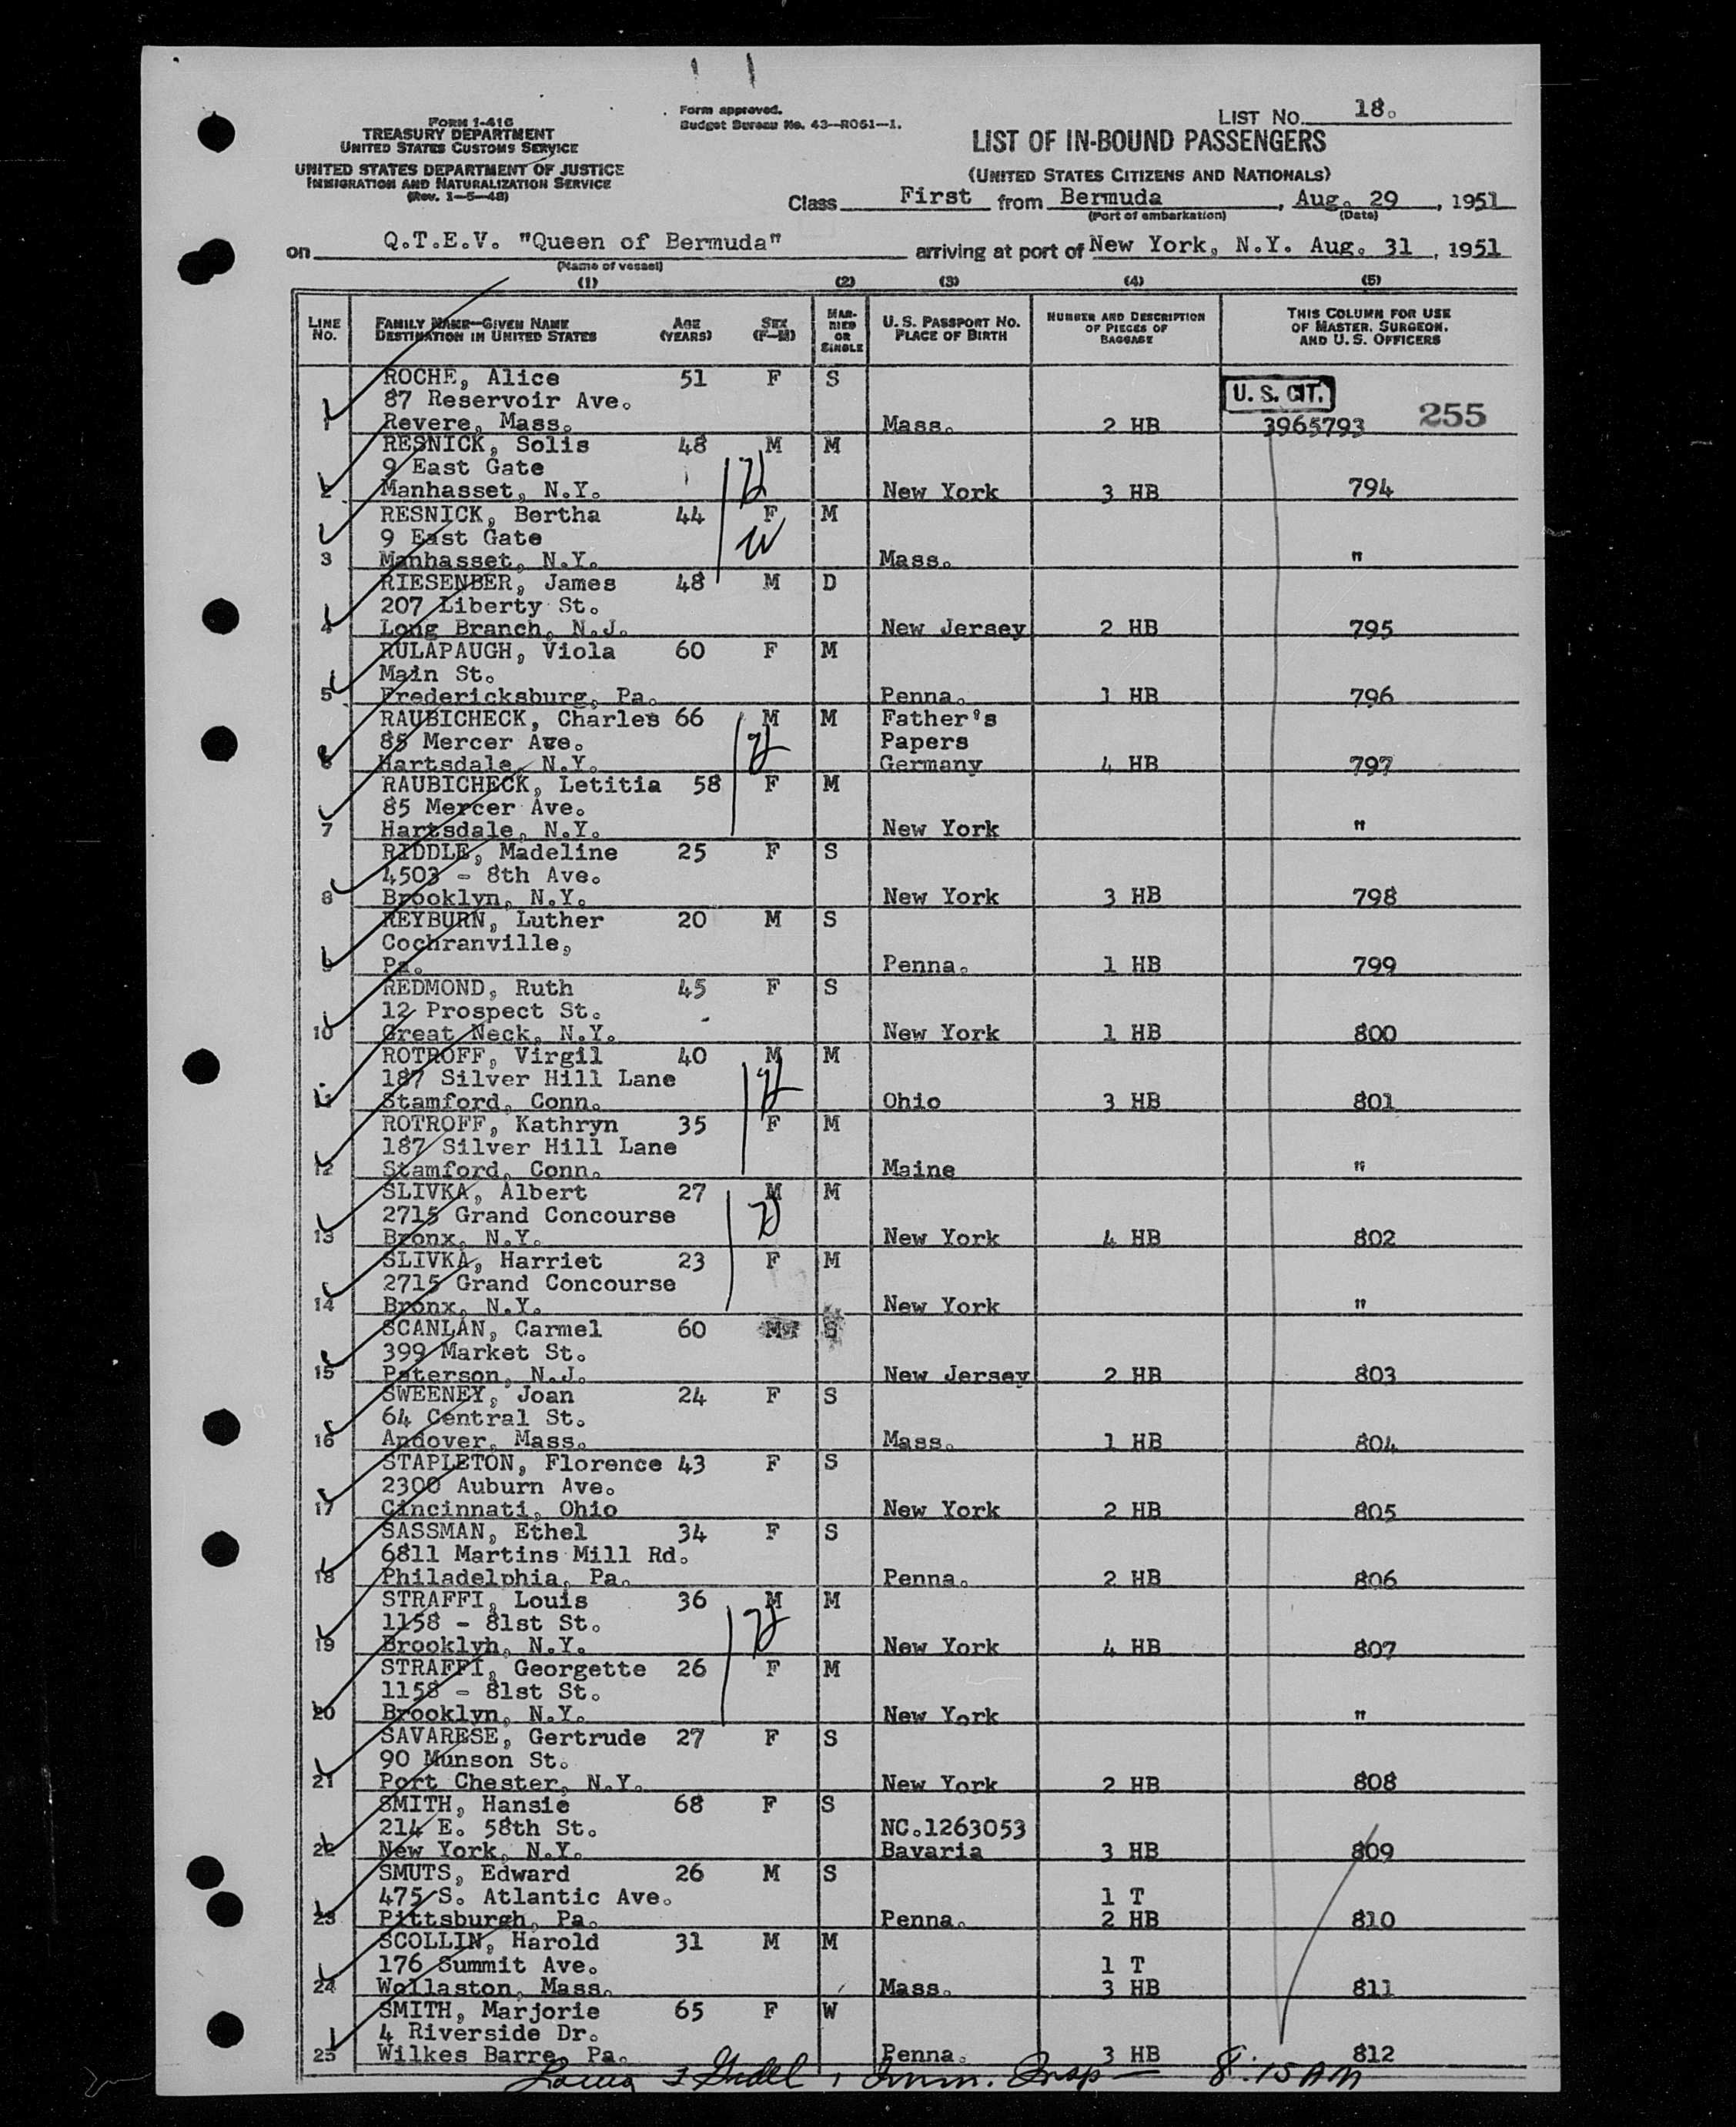 Form approved.
Budget Bureau No. 43—R061—1.
LIST NO. 18.
FORM I-416
TREASURY DEPARTMENT
UNITED STATES CUSTOMS SERVICE
UNITED STATES DEPARTMENT OF JUSTICE
IMMIGRATION AND NATURALIZATION SERVICE
(Rev. 1—5—48)
LIST OF IN-BOUND PASSENGERS
(UNITED STATES CITIZENS AND NATIONALS)
Class First from Bermuda, Aug. 29, 1951
(Port of embarkation) (Date)
on Q.T.E.V. "Queen of Bermuda" arriving at port of New York, N.Y. Aug. 31, 1951
(Name of vessel)
(1) (2) (3) (4) (5)
LINE NO. FAMILY NAME—GIVEN NAME DESTINATION IN UNITED STATES AGE (YEARS) SEX (F—M) MARRIED OR SINGLE U. S. PASSPORT NO. PLACE OF BIRTH NUMBER AND DESCRIPTION OF PIECES OF BAGGAGE THIS COLUMN FOR USE OF MASTER, SURGEON, AND U. S. OFFICERS
ROCHE, Alice 51 F S
87 Reservoir Ave. U. S. CIT. 255
1 Revere, Mass. Mass. 2 HB 3965793
RESNICK, Solis 48 M M
9 East Gate H
2 Manhasset, N.Y. New York 3 HB 794
RESNICK, Bertha 44 F M
9 East Gate W
3 Manhasset, N.Y. Mass. "
RIESENBER, James 48 M D
207 Liberty St.
4 Long Branch, N.J. New Jersey 2 HB 795
RULAPAUGH, Viola 60 F M
Main St.
5 Fredericksburg, Pa. Penna. 1 HB 796
RAUBICHECK, Charles 66 M M Father's
85 Mercer Ave. H Papers
6 Hartsdale, N.Y. Germany 4 HB 797
RAUBICHECK, Letitia 58 F M
85 Mercer Ave.
7 Hartsdale, N.Y. New York "
RIDDLE, Madeline 25 F S
4503 - 8th Ave.
8 Brooklyn, N.Y. New York 3 HB 798
REYBURN, Luther 20 M S
Cochranville,
9 Pa. Penna. 1 HB 799
REDMOND, Ruth 45 F S
12 Prospect St.
10 Great Neck, N.Y. New York 1 HB 800
ROTROFF, Virgil 40 M M
187 Silver Hill Lane H
11 Stamford, Conn. Ohio 3 HB 801
ROTROFF, Kathryn 35 F M
187 Silver Hill Lane
12 Stamford, Conn. Maine "
SLIVKA, Albert 27 M M
2715 Grand Concourse H
13 Bronx, N.Y. New York 4 HB 802
SLIVKA, Harriet 23 F M
2715 Grand Concourse
14 Bronx, N.Y. New York "
SCANLAN, Carmel 60 S
399 Market St.
15 Paterson, N.J. New Jersey 2 HB 803
SWEENEY, Joan 24 F S
64 Central St.
16 Andover, Mass. Mass. 1 HB 804
STAPLETON, Florence 43 F S
2300 Auburn Ave.
17 Cincinnati, Ohio New York 2 HB 805
SASSMAN, Ethel 34 F S
6811 Martins Mill Rd.
18 Philadelphia, Pa. Penna. 2 HB 806
STRAFFI, Louis 36 M M
1158 - 81st St. H
19 Brooklyn, N.Y. New York 4 HB 807
STRAFFI, Georgette 26 F M
1158 - 81st St.
20 Brooklyn, N.Y. New York "
SAVARESE, Gertrude 27 F S
90 Munson St.
21 Port Chester, N.Y. New York 2 HB 808
SMITH, Hansie 68 F S
214 E. 58th St. NC.1263053
22 New York, N.Y. Bavaria 3 HB 809
SMUTS, Edward 26 M S
475 S. Atlantic Ave. 1 T
23 Pittsburgh, Pa. Penna. 2 HB 810
SCOLLIN, Harold 31 M M
176 Summit Ave. 1 T
24 Wollaston, Mass. Mass. 3 HB 811
SMITH, Marjorie 65 F W
4 Riverside Dr.
25 Wilkes Barre, Pa. Penna. 3 HB 812
Imm. Insp 8:15 AM